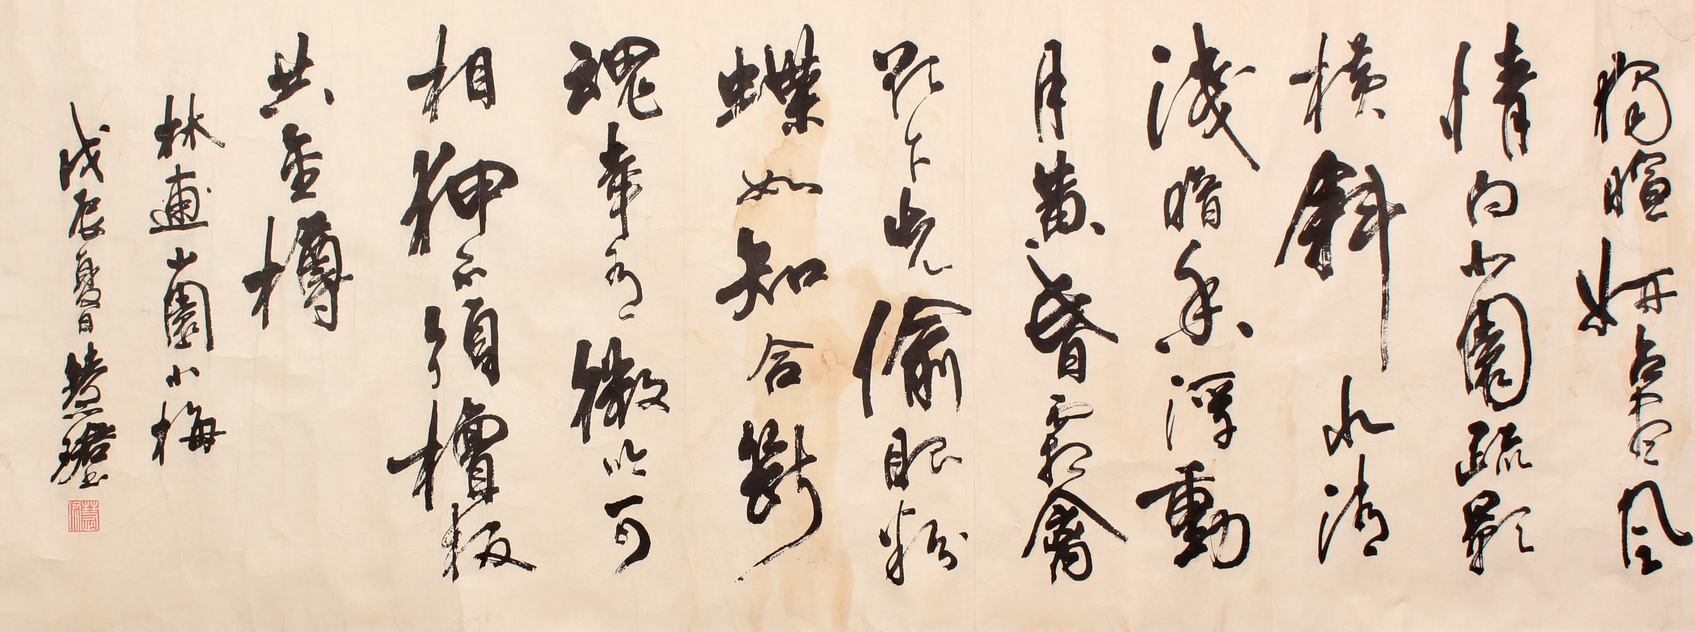 獨暄妍占盡風
情向小園疏影
橫斜水清
淺暗香浮動
月黃昏霜禽
欲下先偷眼粉
蝶如知合斷
魂幸有微吟可
相狎不須檀板
共金樽
林逋山園小梅
戊辰夏日慧珺